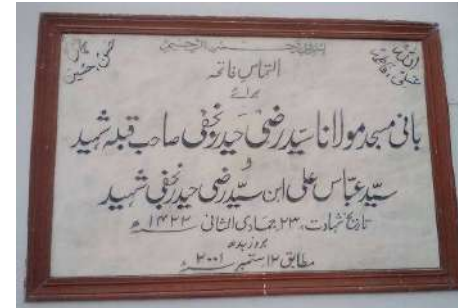 بسم اللہ الرحمن الرحیم
اللہ
محمد
علی، فاطمہ
حسن، حسین
التماس فاتحہ
برائے
بانی مسجد مولانا سید رضی حیدر نجفی صاحب قبلہ شہید
و
سید عباس علی ابن سید رضی حیدر نجفی شہید
تاریخ شہادت، ۲۳ جمادی الثانی ۱۴۲۲ھ
بروز بدھ
مطابق ۱۲ ستمبر ۲۰۰۱ء